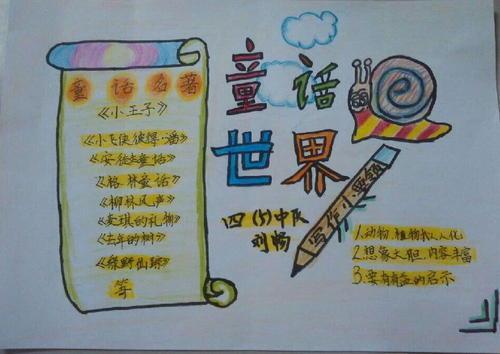 童话名著
《小王子》
《小飞侠彼得·潘》
《安徒生童话》
《格林童话》
《柳林风声》
《麦琪的礼物》
《去年的树》
《绿野仙踪》
等
童话
世界
四(5)中队
刘畅
写作小要领
1.动物、植物拟人化
2.想像大胆,内容丰富
3.要有有益的启示